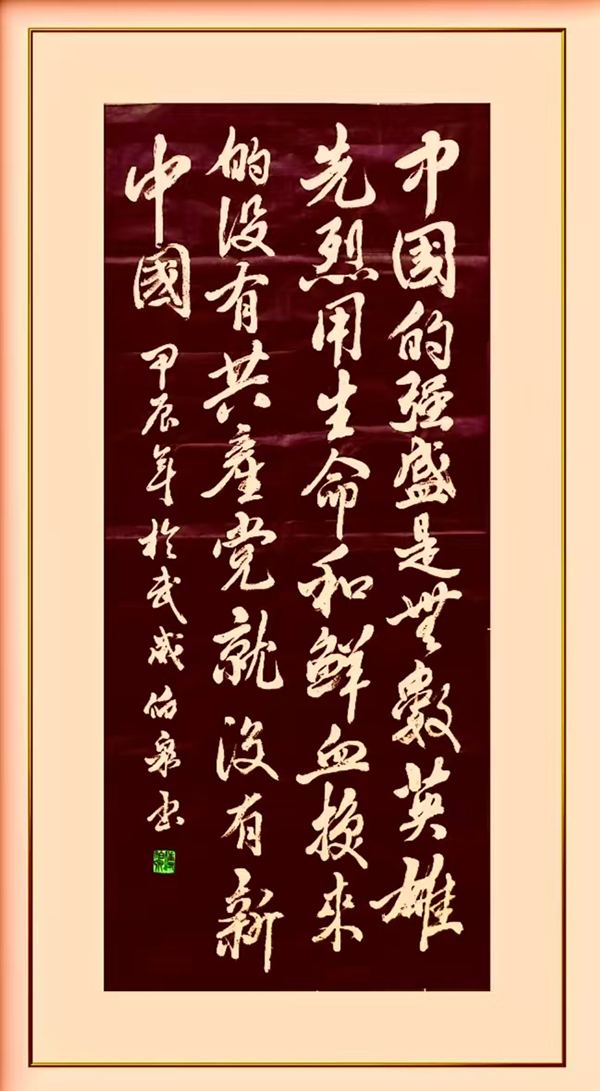 中国的强盛是無數英雄
先烈用生命和鲜血换来
的没有共产党就没有新
中國
甲辰年於武威伯泉书